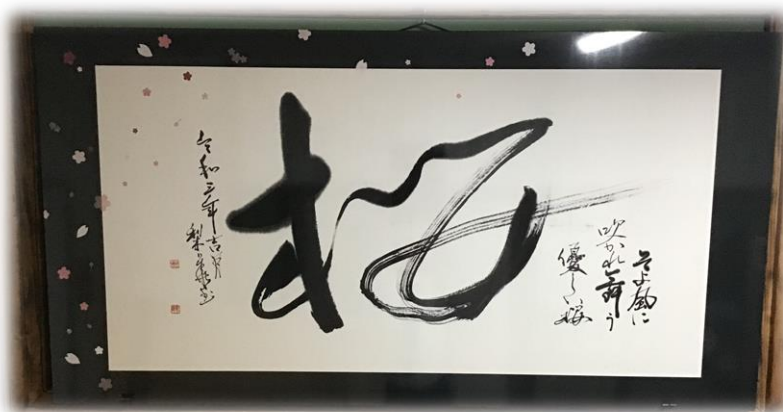 そよ風に
吹かれ舞う
優しい桜
桜
令和三年吉月